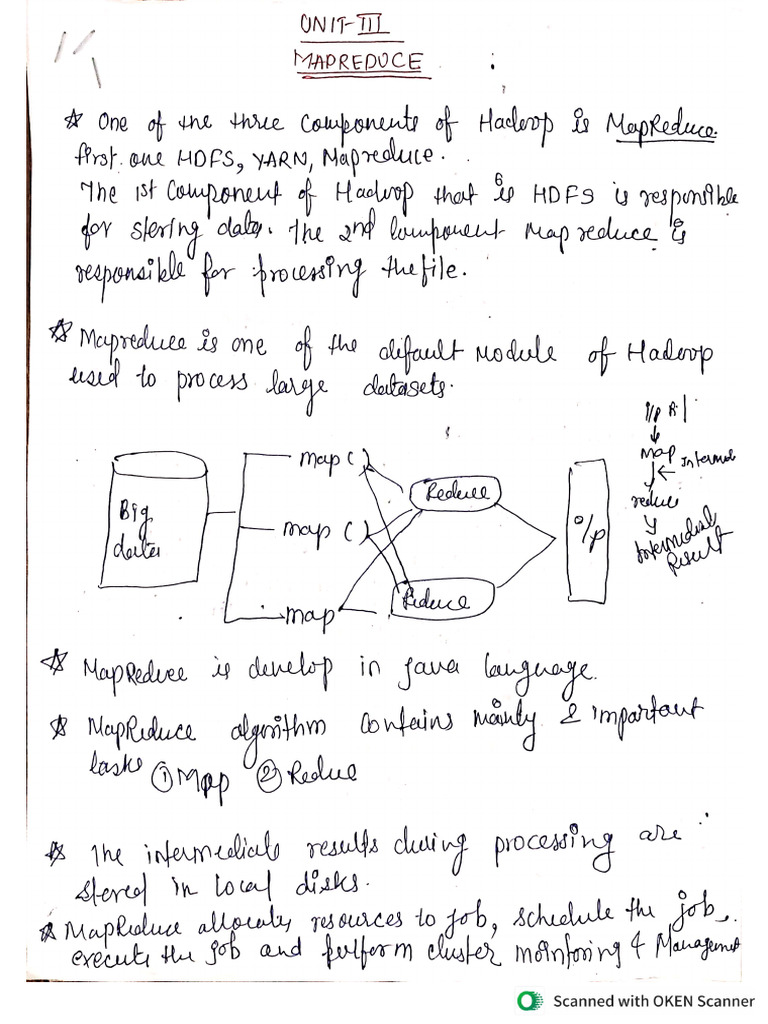 UNIT-III
MAPREDUCE
☆ One of the three Components of Hadoop is MapReduce.
first one HDFS, YARN, Mapreduce.
The 1st Component of Hadoop that is HDFS is responsible
for storing data. The 2nd Component Map reduce is
responsible for processing the file.
☆ Mapreduce is one of the difault Module of Hadoop
used to process large datasets.
Big
data
map ( )
map ( )
map
Reduce
Reduce
o/p
i/p
map
Intermed
reduce
Intermedial
Result
☆ MapReduce is develop in Java language.
☆ MapReduce algorithm contains mainly 2 important
tasks ① Map ② Reduce
☆ The intermediate results during processing are
stored in local disks.
☆ MapReduce allocates resources to job, schedule the job,
execute the job and perform cluster monitoring & Management
Scanned with OKEN Scanner